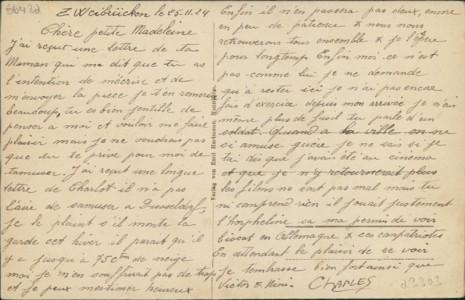 Zweibrücken le 25.11.24
Chère petite Madeleine
J'ai reçut une lettre de ta
Maman qui me dit que tu as
l'intention de m'écrire et de
m'envoyer la pièce je t'en remercie
beaucoup, tu es bien gentille de
penser a moi et vouloir me faire
plaisir mais je ne voudrais pas
que tu te prive pour moi de
t'amuser. J'ai reçut une longue
lettre de Charlot il n'a pas
l'aire de s'amuser a Dusseldorf
je le plaint s'il monte la
garde cet hiver il parait qu'il
y a jusqu'a 75cm de neige
moi je n'en souffrirait pas de trop
et je peux m'estimer heureux
Verlag von Emil Hartmann
Enfin il n'en passera pas deux, encore
en peu de patience & nous nous
retrouverons tous ensemble & je l'espère
pour longtemps. Enfin moi ce n'est
pas comme lui je ne demande
qu'a rester ici je n'ai pas encore
fait d'exercice depuis mon arrivée je n'ai
même plus de fusil tu parle d'un
soldat. Quand a la ville on ne
si amuse guère je ne sais si je
t'ai dis que j'avais été au cinema
et que je n'y retournerait plus
les films ne sont pas mal mais tu
ni comprend rien il jouait justement
l'Orpheline sa ma permis de voir
Biscot en Allemagne & ces compatriotes
En attendant le plaisir de se voir
je t'embrasse bien fort ainsi que
Victor & Ninie CHARLES